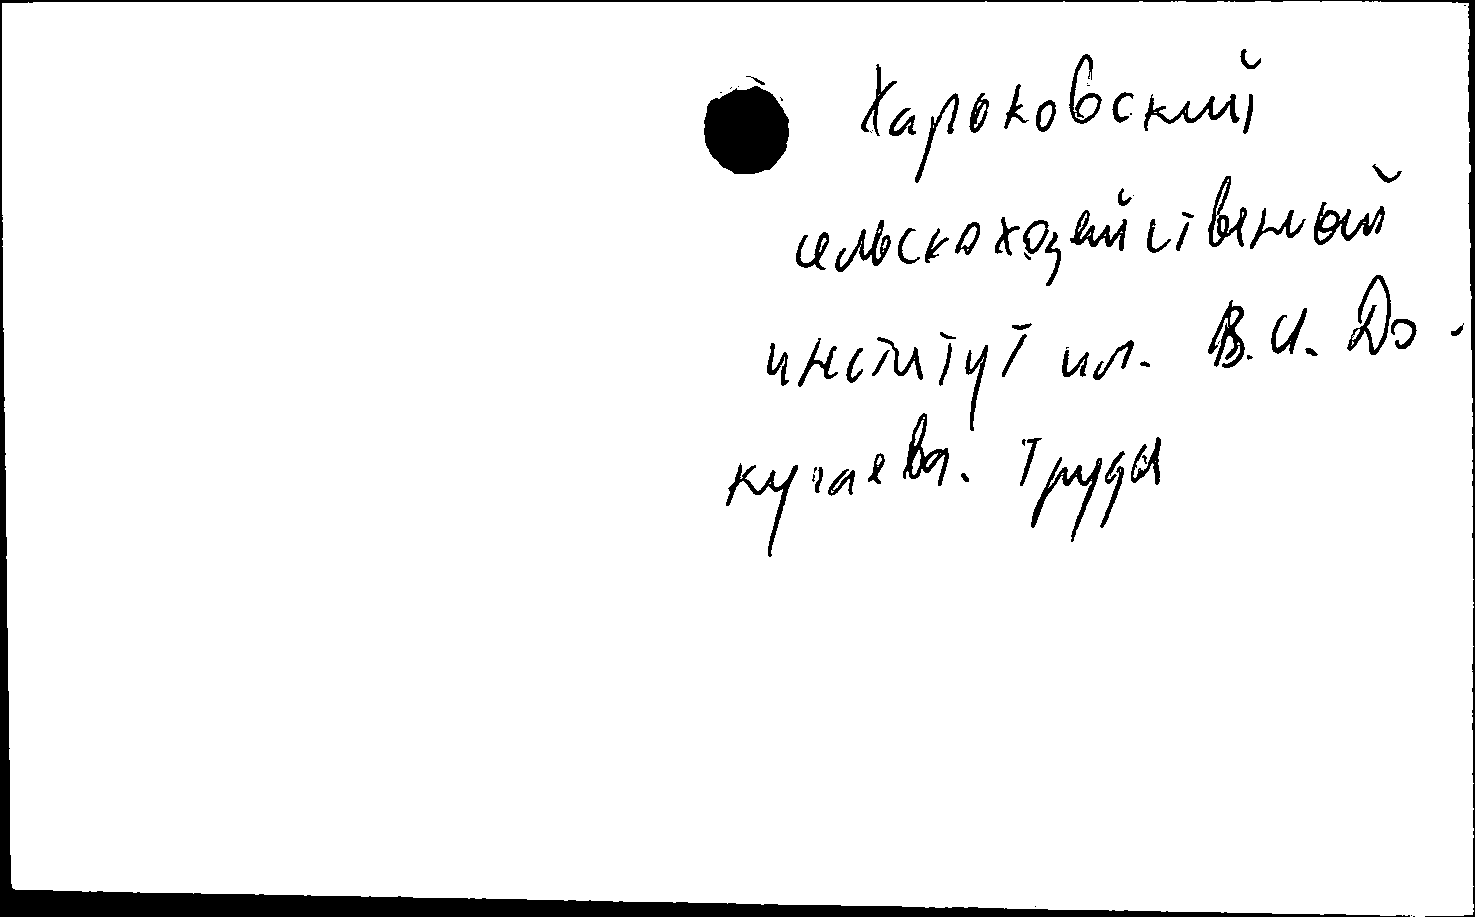 Харьковский
сельскохозяйственный
институт им. В.И. До-
кучаева. Труды